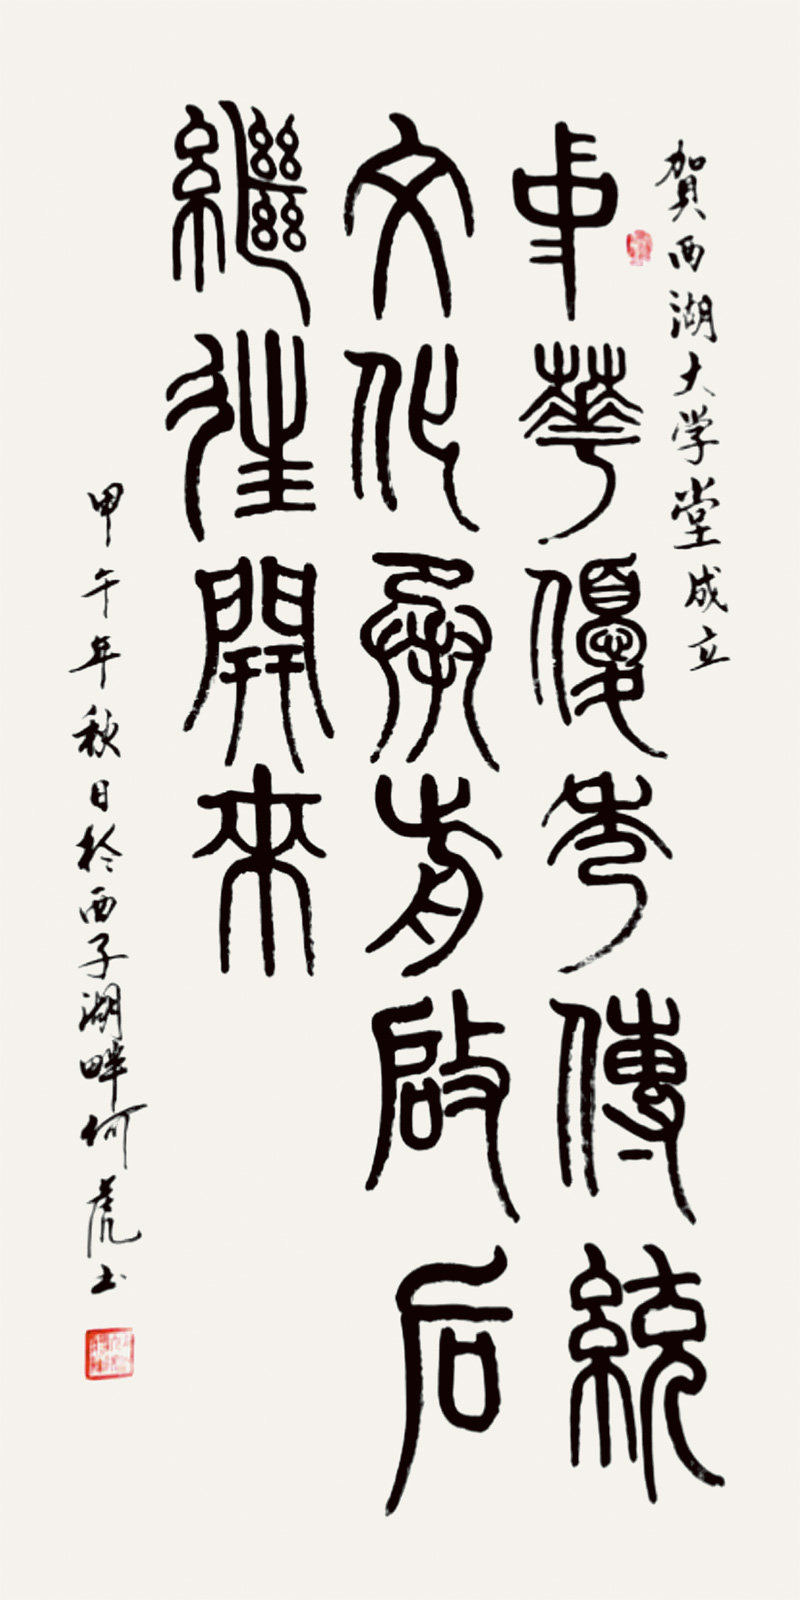 賀西湖大学堂成立
中華優秀傳統
文化承前啟后
繼往開來
甲午年秋日於西子湖畔何虎书